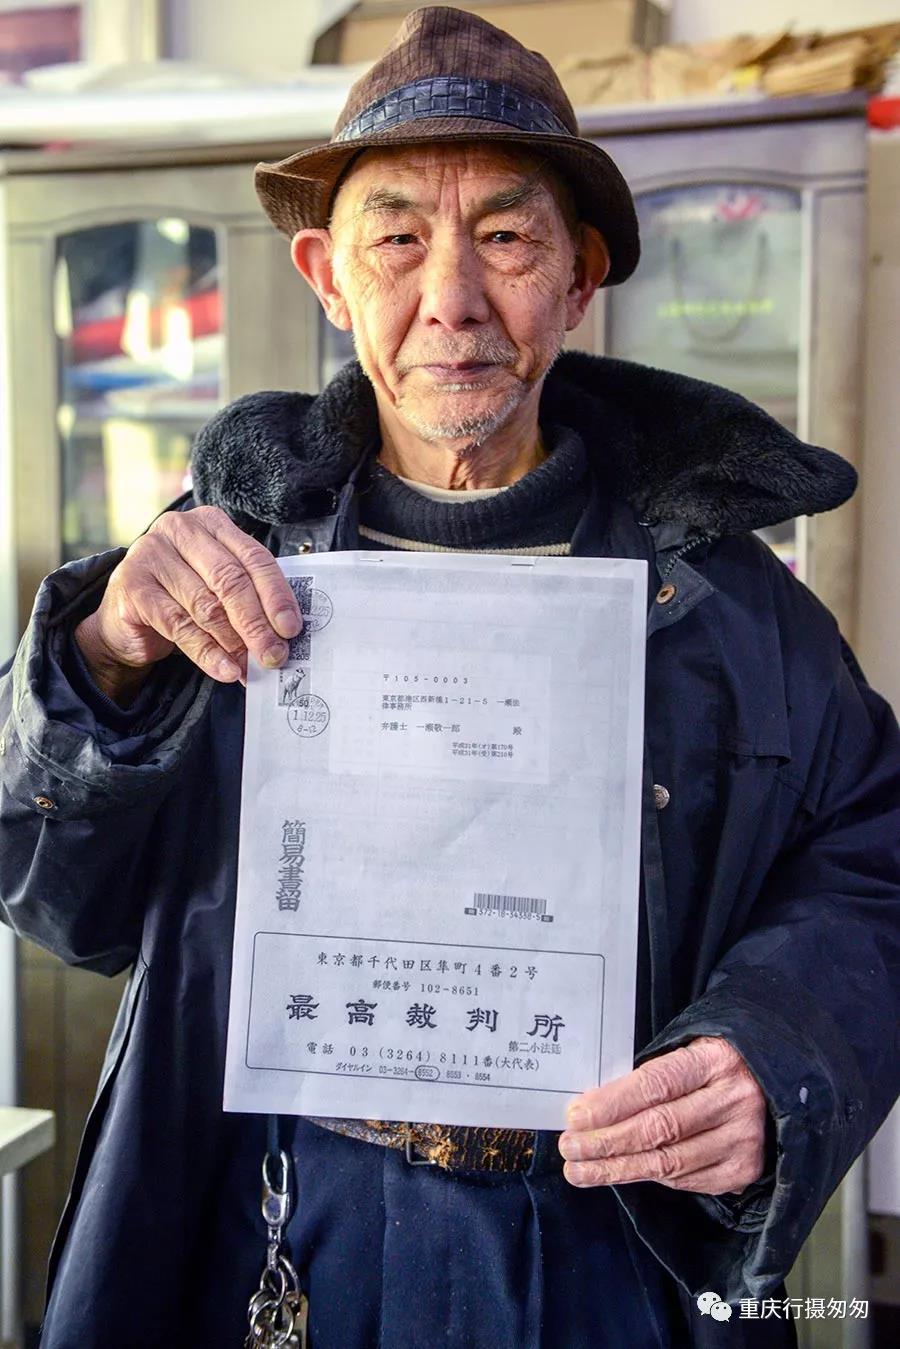 205
50
1.12.25
8-12
〒105-0003
東京都港区西新橋1-21-5 一瀬法
律事務所
弁護士 一瀬敬一郎 殿
平成31年(オ)第170号
平成31年(受)第210号
簡易書留
372-18-34338-5
東京都千代田区隼町4番2号
郵便番号 102-8651
最高裁判所
第二小法廷
電話 03(3264)8111番(大代表)
ダイヤルイン 03-3264-8552・8553・8554
重庆行摄匆匆